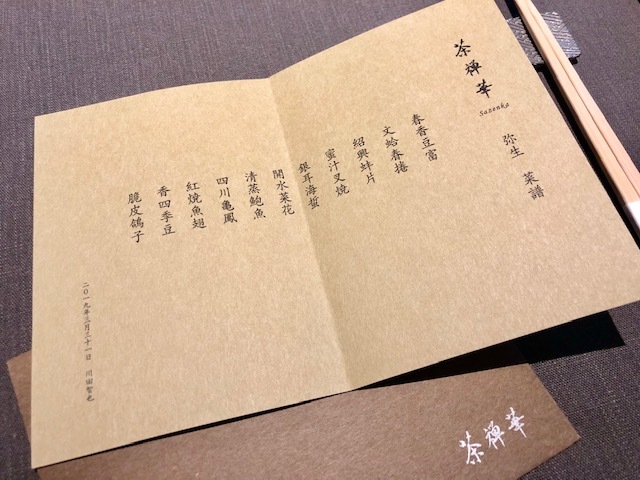 茶禅華
Sazenka
弥生　菜譜
春香豆富
文蛤春捲
紹興蚌片
蜜汁叉焼
銀耳海蜇
開水菜花
清蒸鮑魚
四川亀鳳
紅焼魚翅
香四季豆
脆皮鴿子
二〇一九年三月三十一日　川田智也
茶禅華